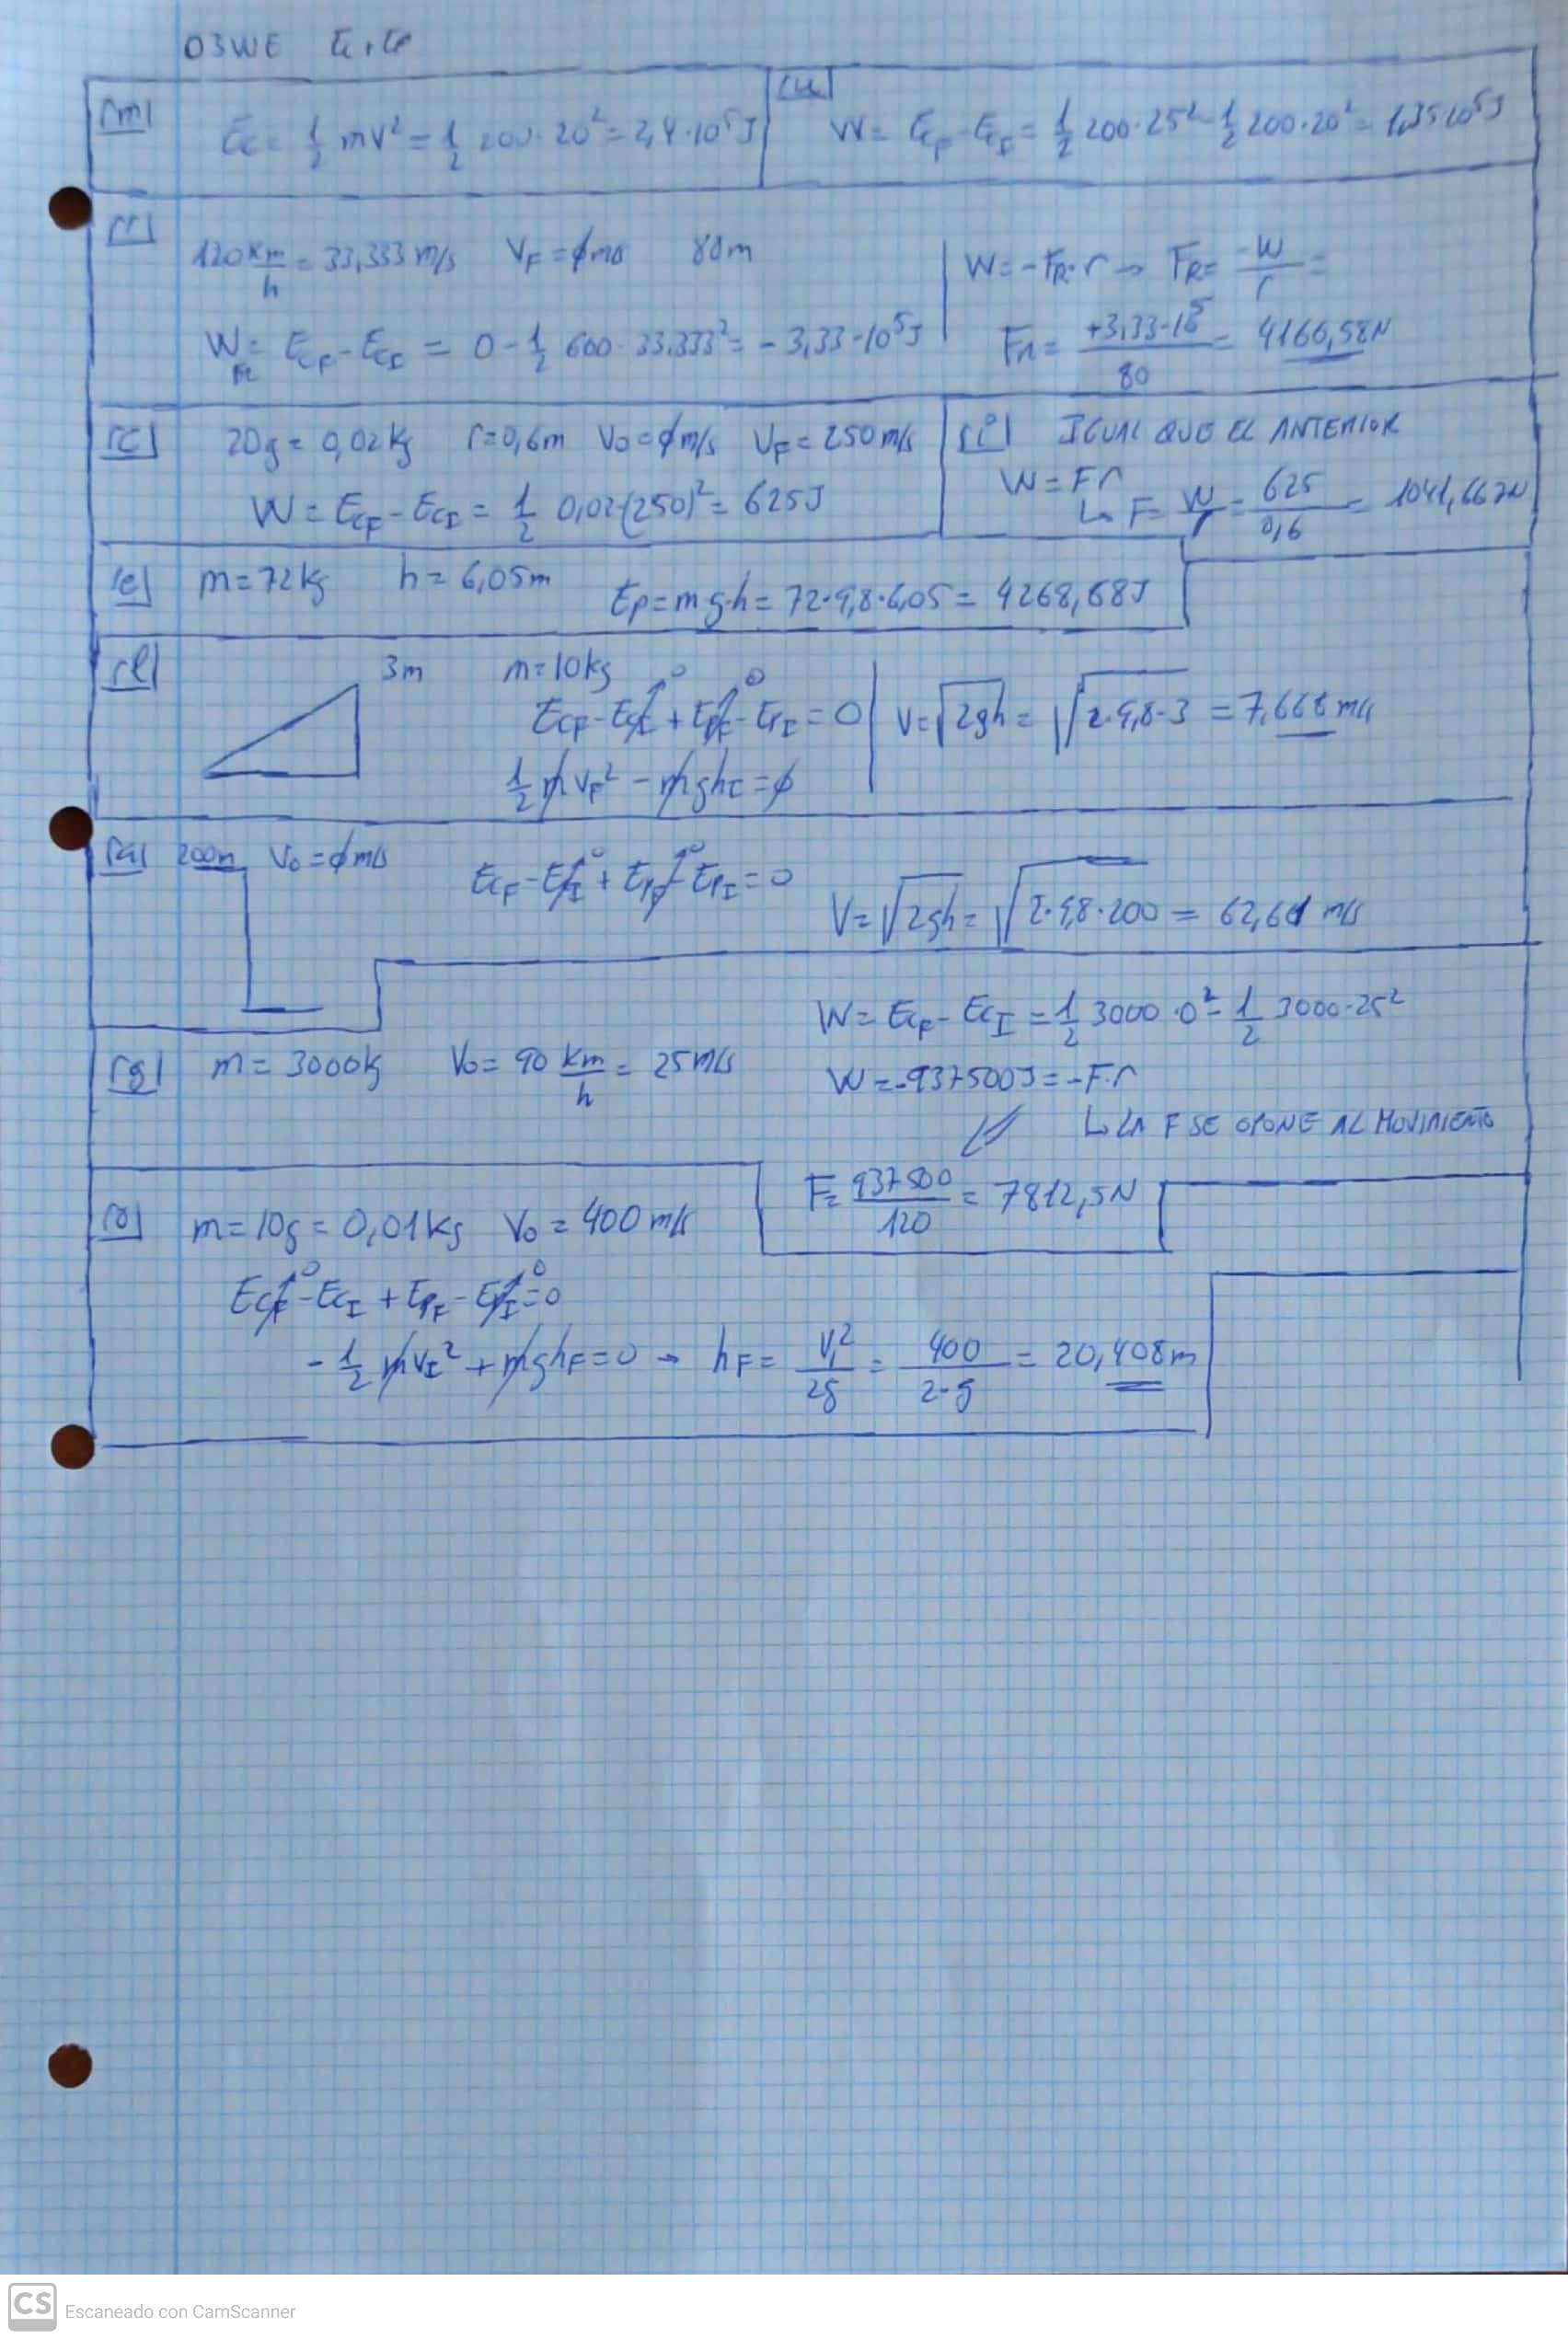 03WE Ec+Ep
[m]
Ec = 1/2 mv² = 1/2 200·20² = 2,4·10⁵J
[u]
W = EcF - EcI = 1/2 200·25² - 1/2 200·20² = 1,35·10⁵J
[r]
120 km/h = 33,333 m/s VF = ϕ m/s 80m
WFR = EcF - EcI = 0 - 1/2 600·33,333² = -3,33·10⁵J
W = -FR·r → FR = -W/r =
FR = +3,33·10⁵/80 = 4166,58N
[c] 20g = 0,02kg r=0,6m V0 = ϕ m/s VF = 250 m/s
W = EcF - EcI = 1/2 0,02·(250)² = 625J
[i] IGUAL QUE EL ANTERIOR
W = F·r
↳ F = W/r = 625/0,6 = 1041,667N
[e] m = 72kg h = 6,05m Ep = m·g·h = 72·9,8·6,05 = 4268,68J
[l] 3m m = 10kg
EcF - EcI⁰ + EpF⁰ - EpI = 0
1/2 mvF² - mghI = ϕ
V = √2gh = √2·9,8·3 = 7,668 m/s
[a] 200m V0 = ϕ m/s
EcF - EcI⁰ + EpF⁰ - EpI = 0
V = √2gh = √2·9,8·200 = 62,61 m/s
[g] m = 3000kg V0 = 90 km/h = 25 m/s
W = EcF - EcI = 1/2 3000·0² - 1/2 3000·25²
W = -937500J = -F·r
↳ LA F SE OPONE AL MOVIMIENTO
F = 937500/120 = 7812,5N
[o] m = 10g = 0,01kg V0 = 400 m/s
EcF⁰ - EcI + EpF - EpI⁰ = 0
-1/2 mvI² + mghF = 0 → hF = vI²/2g = 400/2·g = 20,408m
CS Escaneado con CamScanner